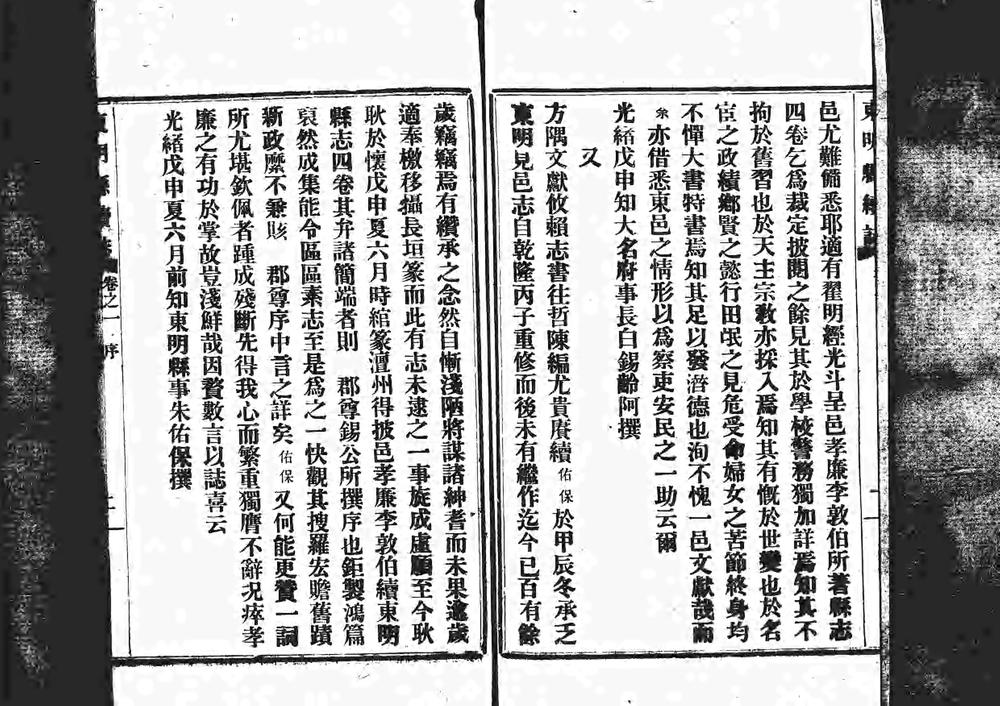 東明縣續志
二
邑尤難備悉耶適有翟明經光斗呈邑孝廉李敦伯所著縣志
四卷乞爲裁定披閱之餘見其於學校警務獨加詳焉知其不
拘於舊習也於天主宗教亦採入焉知其有慨於世變也於名
宦之政績鄉賢之懿行田氓之見危受命婦女之苦節終身均
不憚大書特書焉知其足以發潛德也洵不愧一邑文獻哉而
余亦借悉東邑之情形以爲察吏安民之一助云爾
光緒戊申知大名府事長白錫齡阿撰
又
方隅文獻攸賴志書往哲陳編尤貴賡續佑保於甲辰冬承乏
東明見邑志自乾隆丙子重修而後未有繼作迄今已百有餘
歲竊竊焉有纘承之念然自慚淺陋將謀諸紳耆而未果逾歲
適奉檄移攝長垣篆而此有志未逮之一事旋成虛願至今耿
耿於懷戊申夏六月時綰篆澶州得披邑孝廉李敦伯續東明
縣志四卷其弁諸簡端者則 郡尊錫公所撰序也鉅製鴻篇
裒然成集能令區區素志至是爲之一快觀其搜羅宏贍舊蹟
新政靡不兼賅 郡尊序中言之詳矣佑保又何能更贊一詞
所尤堪欽佩者踵成殘斷先得我心而繁重獨膺不辭況瘁孝
廉之有功於掌故豈淺鮮哉因贅數言以誌喜云
光緒戊申夏六月前知東明縣事朱佑保撰
東明縣續志 卷之一 序 二